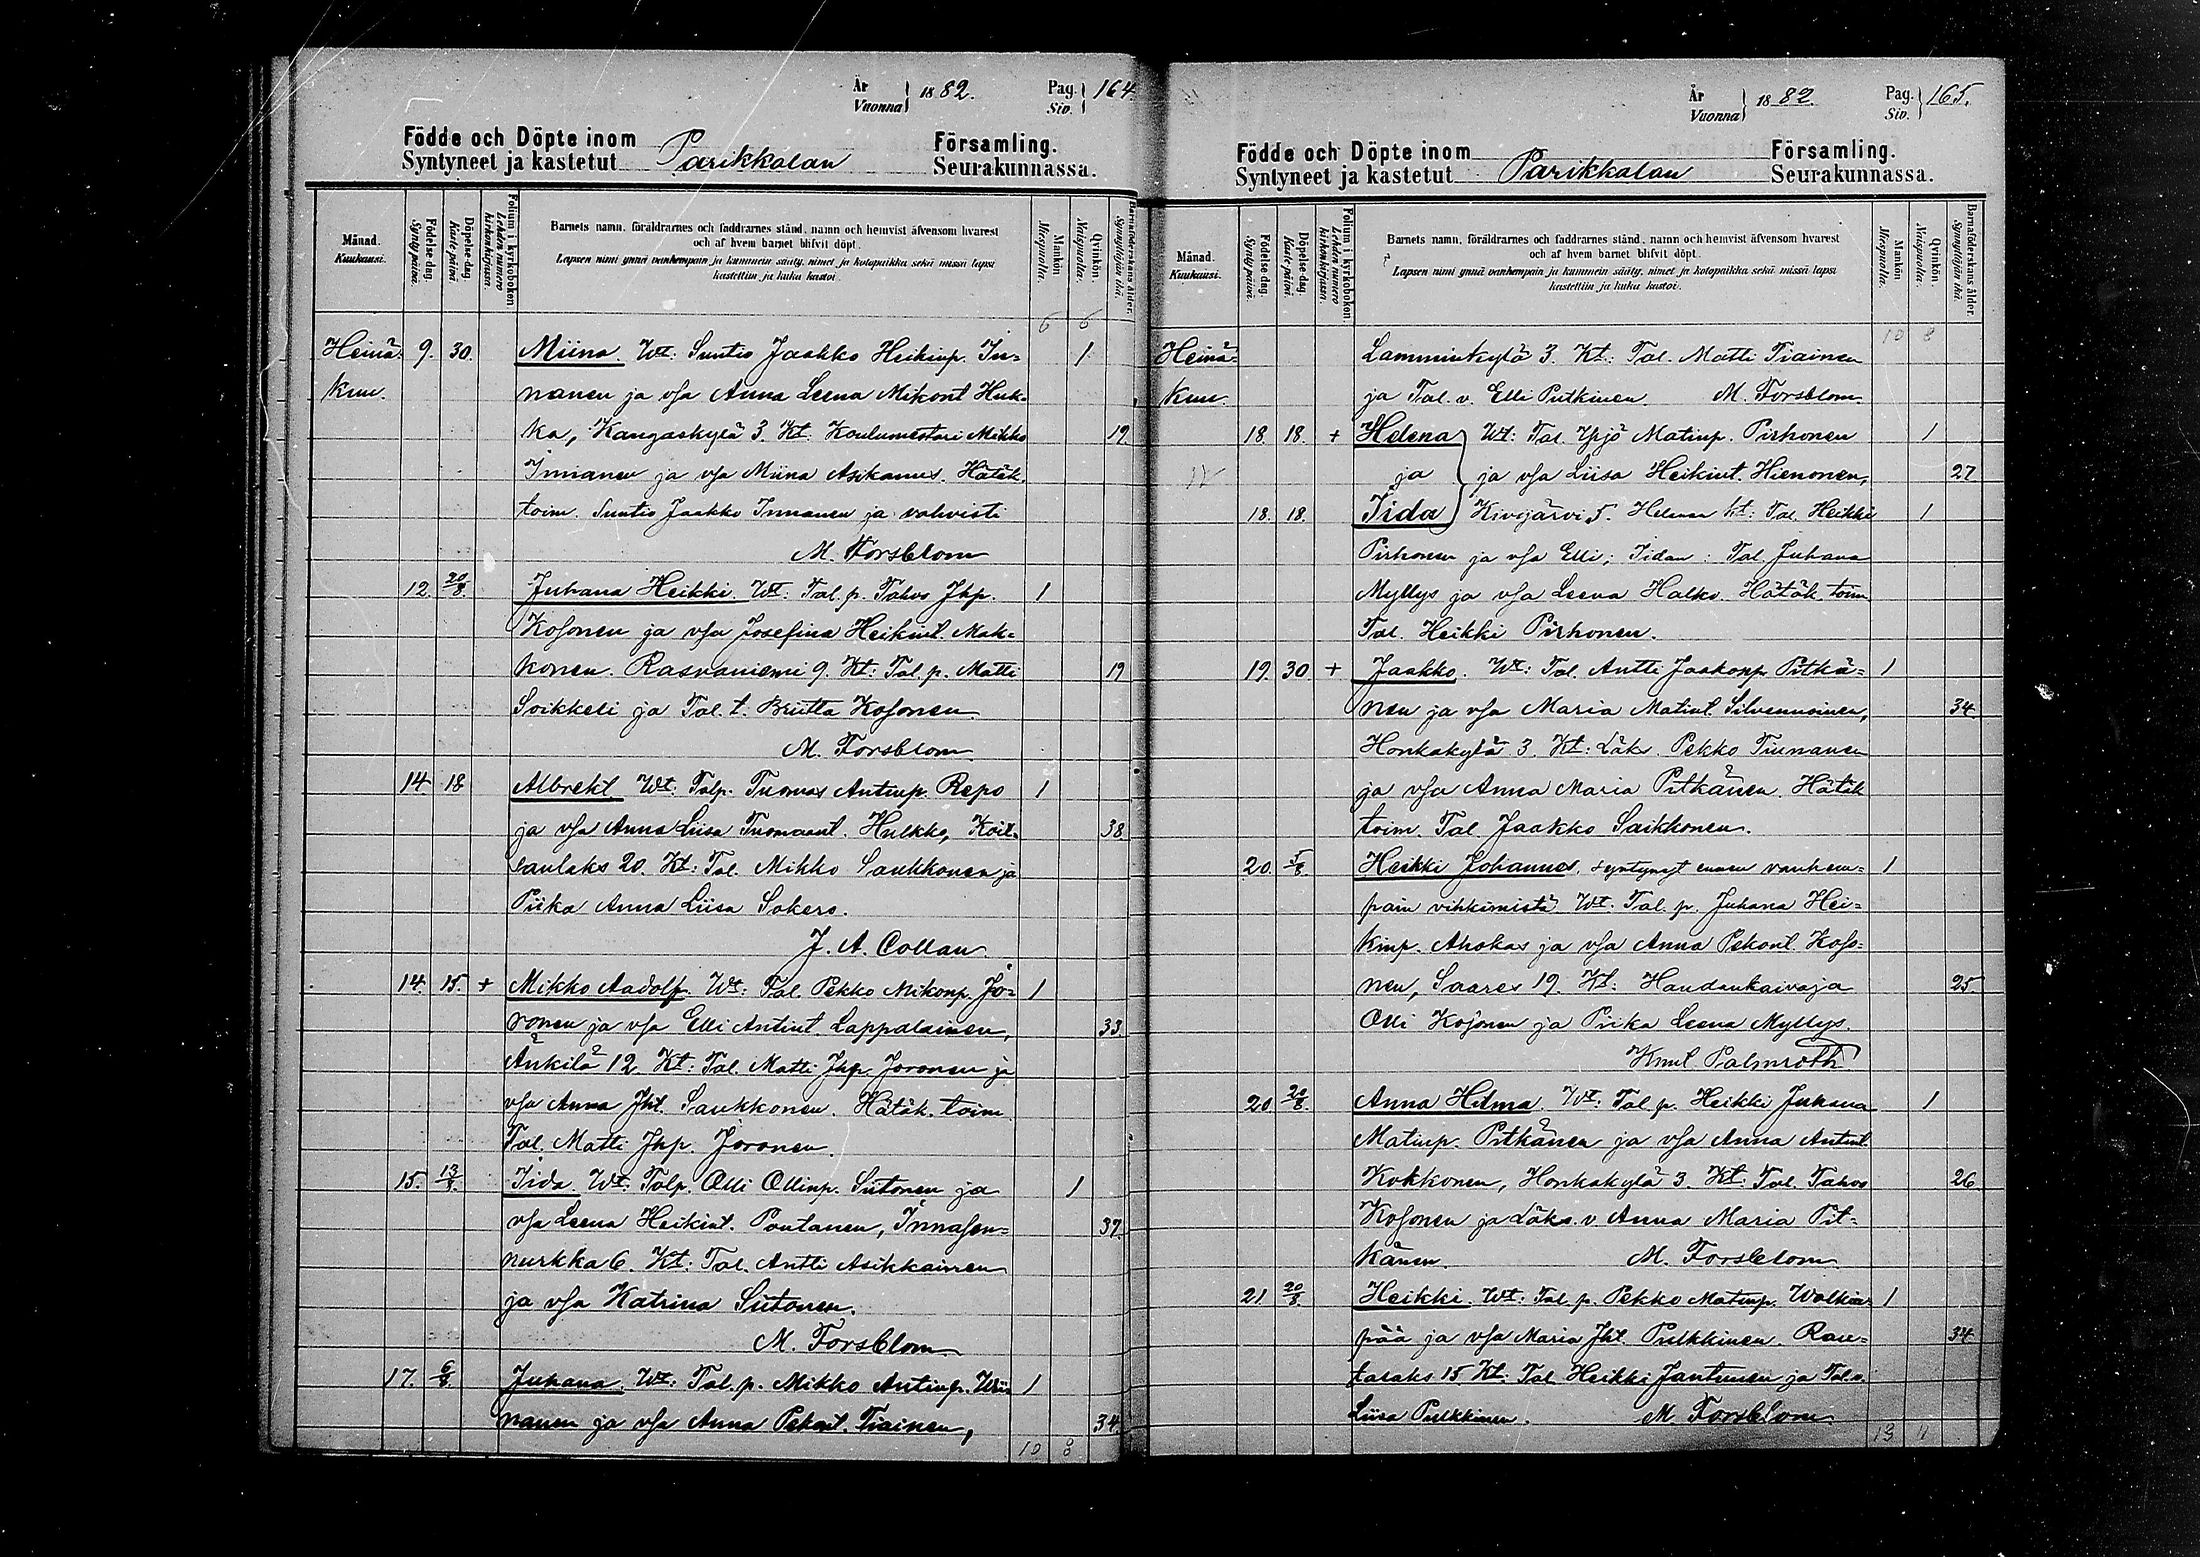 År Vuonna 1882. Pag. Siv. 164.
Födde och Döpte inom Parikkalan Församling.
Syntyneet ja kastetut Seurakunnassa.
Månad. Kuukausi.
Födelse-dag. Syntypäivä.
Döpelse-dag. Kastepäivä.
Folium i kyrkoboken. Lehden numero kirkonkirjassa.
Barnets namn, föräldrarnes och faddrarnes stånd, namn och hemvist äfvensom hvarest
och af hvem barnet blifvit döpt.
Lapsen nimi ynnä vanhempain ja kummein sääty, nimet ja kotopaikka sekä missä lapsi
kastettiin ja kuka kastoi.
Mankön Miespuolia.
Qvinkön. Naispuolia.
Barnaföderskans ålder. Synnyttäjän ikä.
6 6
Heinä- 9. 30. Miina. Wt: Suntio Jaakko Heikinp. In- 1
kuu. nanen ja vsa Anna Leena Mikont. Huk-
ka, Kangaskylä 3. Kt. Koulumestari Mikko 19
Innanen ja vsa Miina Asikanus. Hätäk.
toim. Suntio Jaakko Innanen ja vahvisti
M. Forsblom
12. 20/8. Juhana Heikki. Wt: Tal. p. Tahvo Jhp. 1
Kosonen ja vsa Josefina Heikint. Mak-
konen. Rasvaniemi 9. Kt: Tal. p. Matti 19
Soikkeli ja Tal. t. Briitta Kosonen.
M. Forsblom
14 18 Albrekt. Wt: Talp. Tuomas Antinp. Repo 1
ja vsa Anna Liisa Tuomaant. Hulkko, Koit- 38
sanlaks 20. Kt: Tal. Mikko Saukkonen ja
Piika Anna Liisa Sokero.
J. A. Collan.
14. 15. + Mikko Aadolf. Wt: Tal. Pekko Mikonp. Jo- 1
ronen ja vsa Elli Antint. Lappalainen, 33
Änkilä 12. Kt: Tal. Matti Jhp. Joronen ja
vsa Anna Jht. Saukkonen. Hätäk. toim.
Tal. Matti Jhp. Joronen.
15. 13/8. Iida. Wt. Talp. Olli Ollinp. Sutonen ja 1
vsa Leena Heikint. Pontanen, Innasen- 37
nurkka 6. Kt: Tal. Antti Asikkainen
ja vsa Katrina Sutonen.
M. Forsblom
17. 6/8. Juhana. Wt: Tal. p. Mikko Antinp. 1
nanen ja vsa Anna Pekont. Tiainen, 34.
10 8
År Vuonna 1882. Pag. Siv. 165.
Födde och Döpte inom Parikkalan Församling.
Syntyneet ja kastetut Seurakunnassa.
Månad. Kuukausi.
Födelse-dag. Syntypäivä.
Döpelse-dag. Kastepäivä.
Folium i kyrkoboken. Lehden numero kirkonkirjassa.
Barnets namn, föräldrarnes och faddrarnes stånd, namn och hemvist äfvensom hvarest
och af hvem barnet blifvit döpt.
Lapsen nimi ynnä vanhempain ja kummein sääty, nimet ja kotopaikka sekä missä lapsi
kastettiin ja kuka kastoi.
Mankön Miespuolia.
Qvinkön. Naispuolia.
Barnaföderskans ålder. Synnyttäjän ikä.
10 8
Heinä- Lamminkylä 3. Kt: Tal. Matti Tiainen
kuu. ja Tal. v. Elli Putkinen. M. Forsblom.
18. 18. + Helena Wt: Tal. Yrjö Matinp. Pirhonen 1
ja ja vsa Liisa Heikint. Hienonen, 27
18. 18. Iida Kivijärvi 5. Helenan kt: Tal. Heikki 1
Pirhonen ja vsa Elli; Iidan: Tal. Juhana
Myllys ja vsa Leena Halko. Hätäk. toim.
Tal. Heikki Pirhonen.
19. 30 + Jaakko. Wt: Tal. Antti Jaakonp. Pitkä- 1
nen ja vsa Maria Matint. Silvennoinen, 34.
Honkakylä 3. Kt: Läks. Pekko Tiinanen
ja vsa Anna Maria Pitkänen. Hätäk
toim. Tal Jaakko Saikkonen.
20. 5/8. Heikki Johannes, syntynyt ennen vanhem- 1
pain vihkimistä. Wt. Tal. p. Juhana Hei-
kinp. Ahokas ja vsa Anna Pekont. Koso-
nen, Saares 19. Kt: Haudankaivaja 25.
Olli Kosonen ja Piika Leena Myllys.
Knut Palmroth
20. 20/8. Anna Hilma. Wt: Tal. p. Heikki Juhana 1
Matinp. Pitkänen ja vsa Anna Antint.
Kokkonen, Honkakylä 3. Kt: Tal. Tahvo 26.
Kosonen ja Läks. v. Anna Maria Pit-
känen. M. Forsblom
21. 20/8. Heikki. Wt: Tal. p. Pekko Matinp. Walkia- 1
pää ja vsa Maria Jht. Pulkkinen. Rau- 34
talaks 15. Kt: Tal. Heikki Jantunen ja Tal. v.
Liisa Pulkkinen. M. Forsblom
13 11